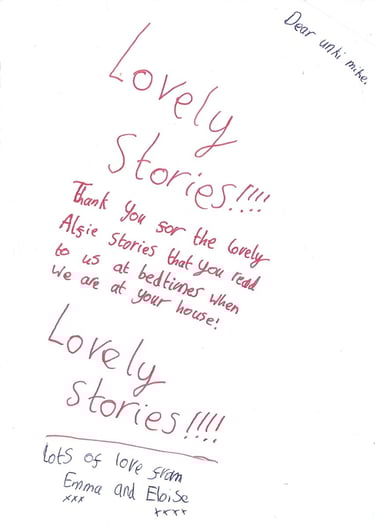 Dear unki mike.
Lovely
Stories!!!!
Thank you for the lovely
Algie Stories that you read
to us at bedtimes when
we are at your house!
Lovely
stories!!!!
Lots of love from
Emma and Eloise
xxx xxxx